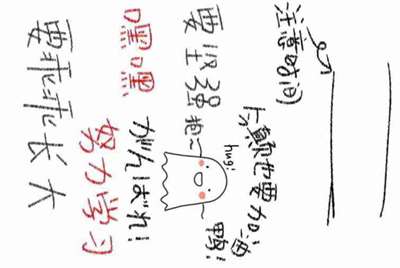 注意时间
也要加油
鸭!
hug!
抱~
要坚强
がんばれ!
嘿嘿
努力学习
要乖乖长大